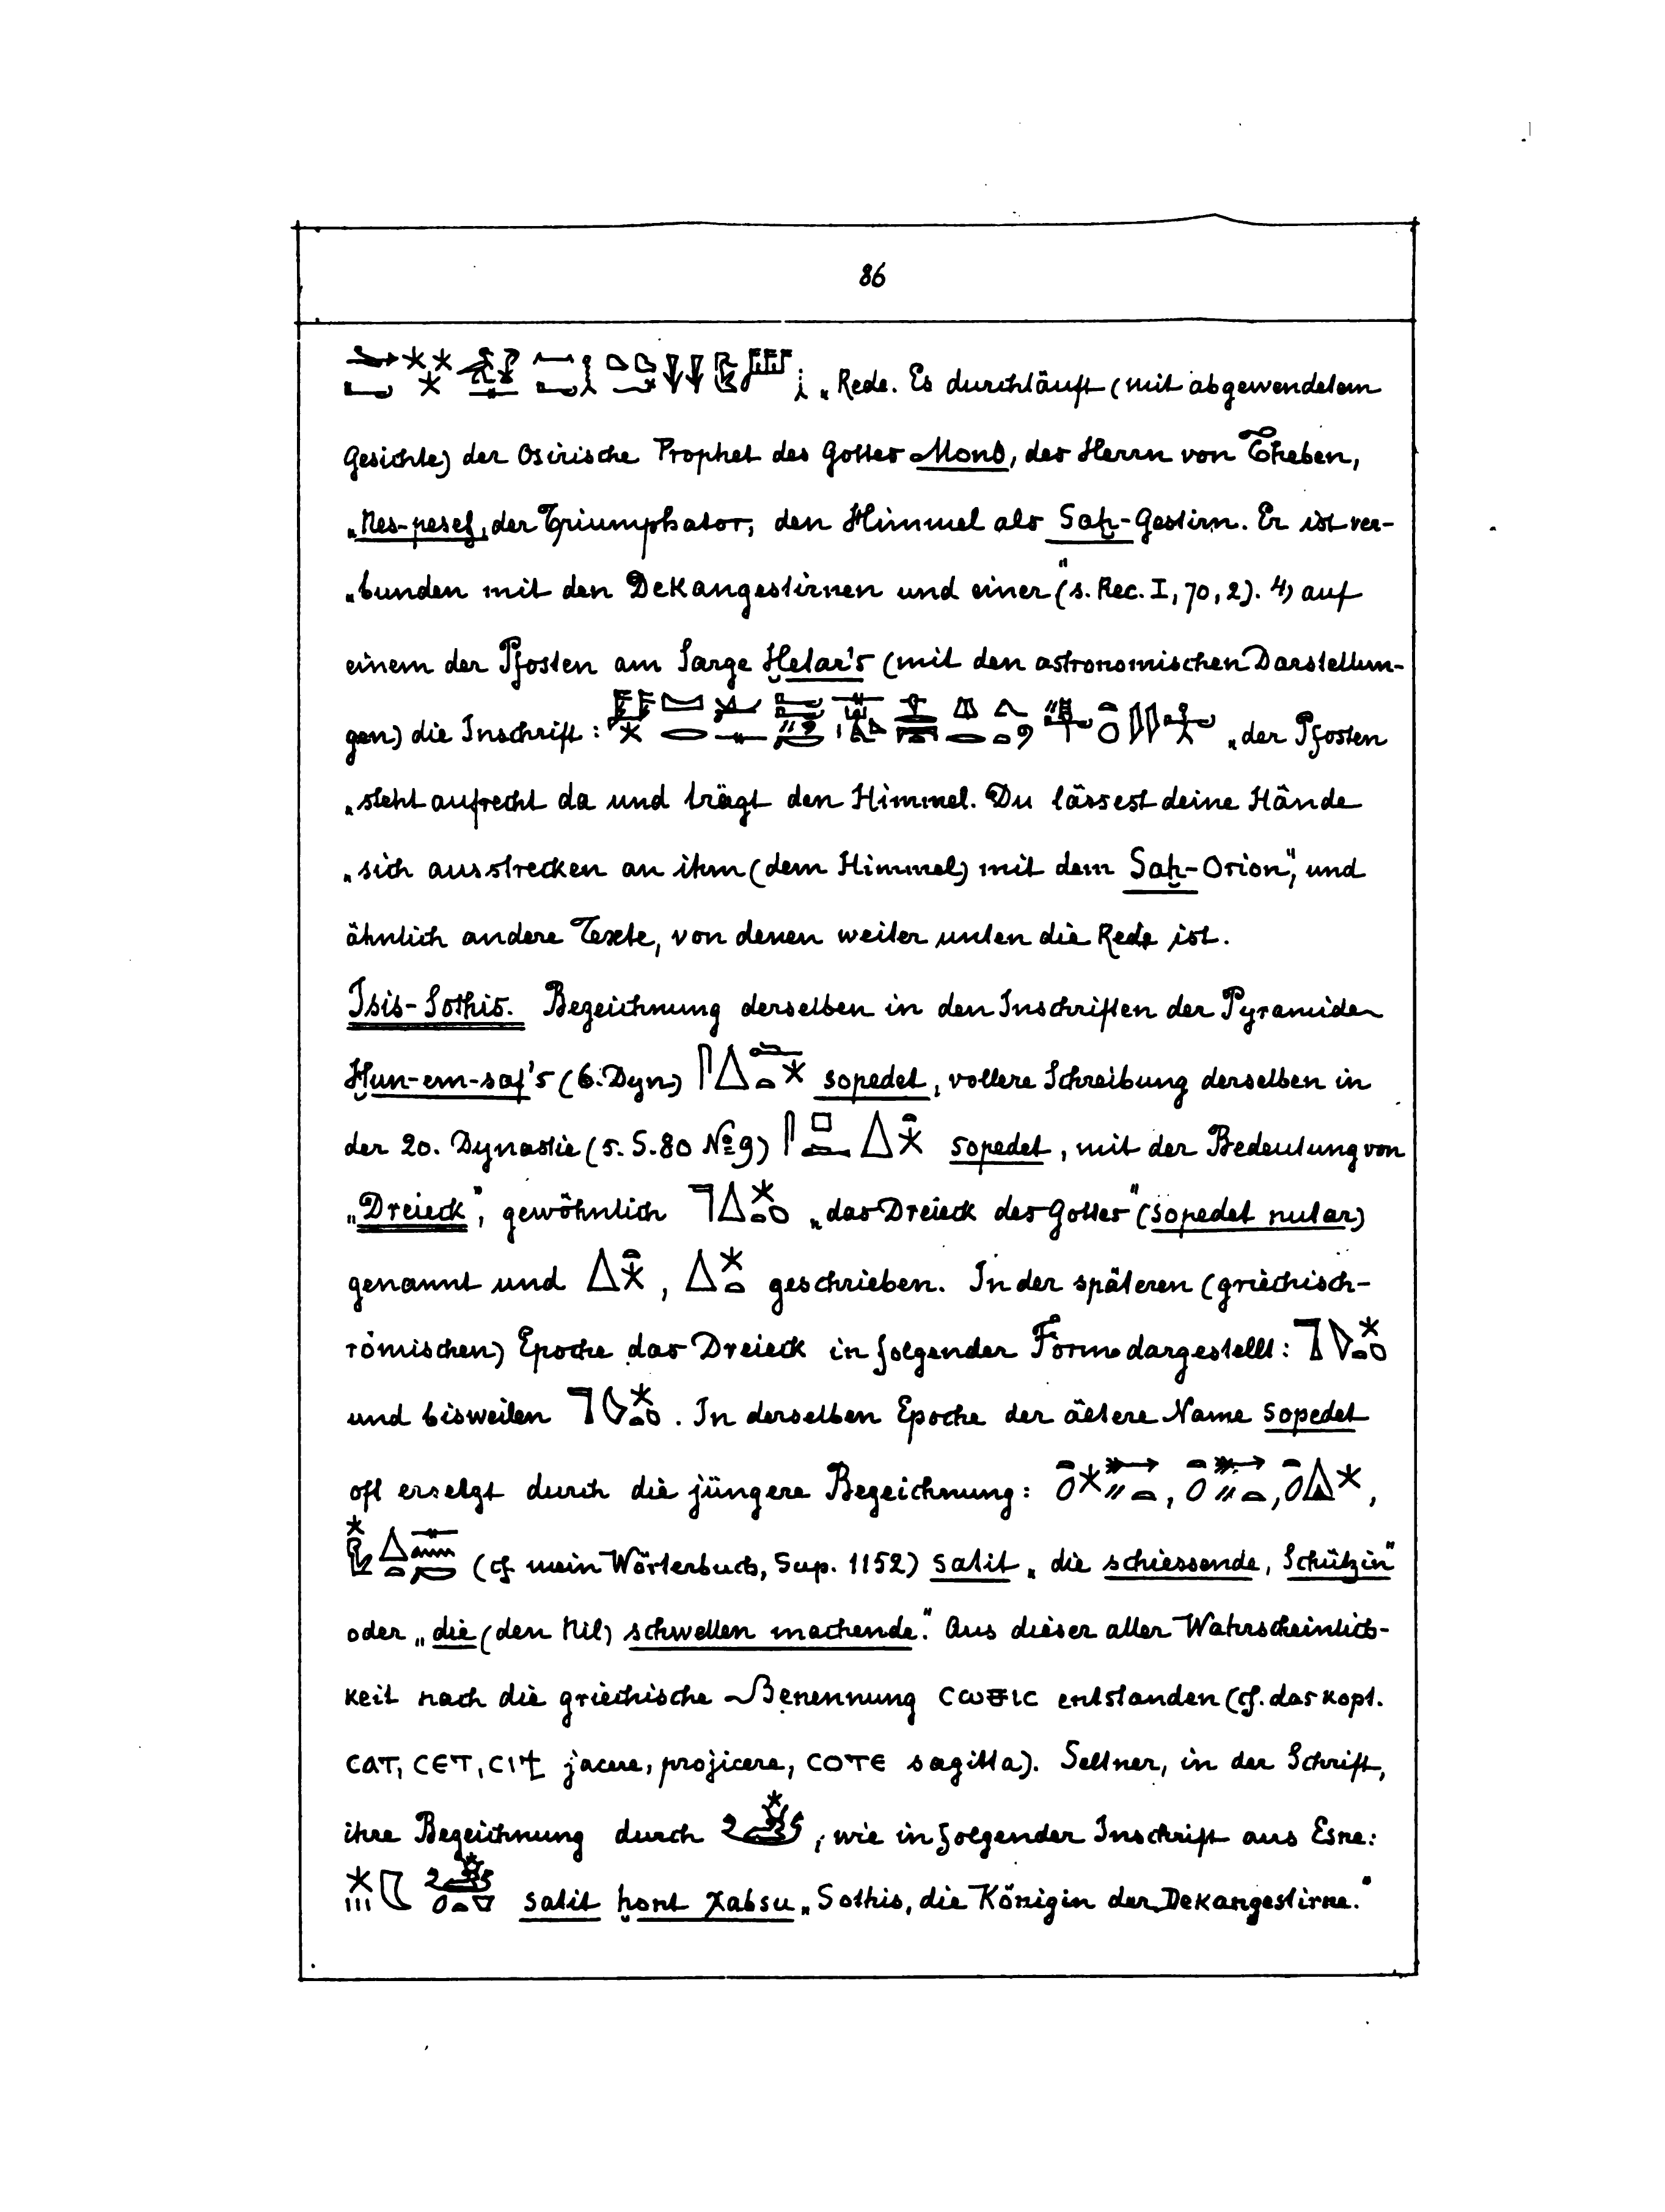 86
„Rede. Es durchläuft (mit abgewendetem
Gesichte) der Osirische Prophet des Gottes Mond, des Herrn von Theben,
„Nes-pesef, der Triumphator, den Himmel als Saḥ-Gestirn. Er ist ver-
„bunden mit den Dekangestirnen und einer“ (s. Rec. I, 70, 2). 4) auf
einem der Pfosten am Sarge Ḥetar's (mit den astronomischen Darstellun-
gen) die Inschrift: „der Pfosten
„steht aufrecht da und trägt den Himmel. Du lässest deine Hände
„sich ausstrecken an ihm (dem Himmel) mit dem Saḥ-Orion“, und
ähnlich andere Texte, von denen weiter unten die Rede ist.
Isis-Sothis. Bezeichnung derselben in den Inschriften der Pyramide
Ḥun-em-saf's (6. Dyn) sopedet, vollere Schreibung derselben in
der 20. Dynastie (s. S. 80 № 9) sopedet, mit der Bedeutung von
„Dreieck“, gewöhnlich „das Dreieck des Gottes“ (sopedet nutar)
genannt und , geschrieben. In der späteren (griechisch-
römischen) Epoche das Dreieck in folgender Form dargestellt:
und bisweilen . In derselben Epoche der ältere Name sopedet
oft ersetzt durch die jüngere Bezeichnung: , , ,
(cf mein Wörterbuch, Sup. 1152) satit „die schiessende, Schützin“
oder „die (den Nil) schwellen machende“. Aus dieser aller Wahrscheinlich-
keit nach die griechische Benennung entstanden (cf. das kopt.
ⲥⲁⲧ, ⲥⲉⲧ, ⲥⲓϯ jacere, projicere, ⲥⲟⲧⲉ sagitta). Seltner, in der Schrift,
ihre Bezeichnung durch , wie in folgender Inschrift aus Esne:
satit ḥont χabsu „Sothis, die Königin der Dekangestirne.“